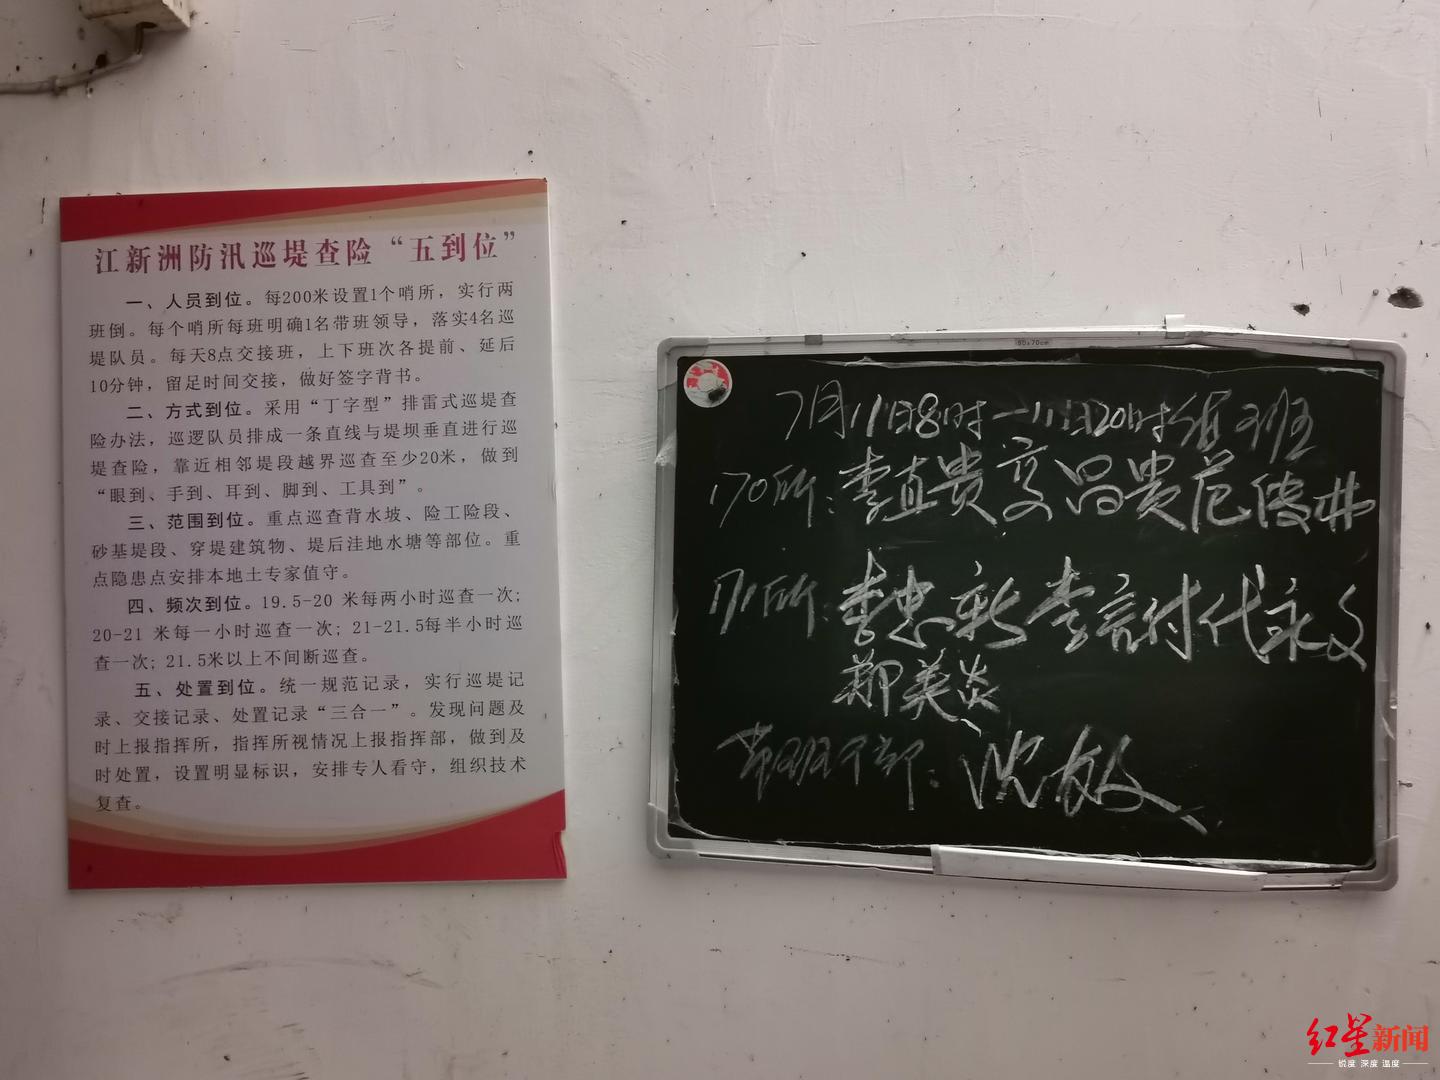 江新洲防汛巡堤查险“五到位”
一、人员到位。每200米设置1个哨所，实行两
班倒。每个哨所每班明确1名带班领导，落实4名巡
堤队员。每天8点交接班，上下班次各提前、延后
10分钟，留足时间交接，做好签字背书。
二、方式到位。采用“丁字型”排雷式巡堤查
险办法，巡逻队员排成一条直线与堤坝垂直进行巡
堤查险，靠近相邻堤段越界巡查至少20米，做到
“眼到、手到、耳到、脚到、工具到”。
三、范围到位。重点巡查背水坡、险工险段、
砂基堤段、穿堤建筑物、堤后洼地水塘等部位。重
点隐患点安排本地土专家值守。
四、频次到位。19.5-20 米每两小时巡查一次;
20-21 米每一小时巡查一次; 21-21.5每半小时巡
查一次; 21.5米以上不间断巡查。
五、处置到位。统一规范记录，实行巡堤记
录、交接记录、处置记录“三合一”。发现问题及
时上报指挥所，指挥所视情况上报指挥部，做到及
时处置，设置明显标识，安排专人看守，组织技术
复查。
90x70cm
7月11日8时—11日20时值班
170所: 李直贵 昌贵 范
171所: 李忠新 李 代永文
郑美炎
带班干部: 沈敏
红星新闻
锐度 深度 温度